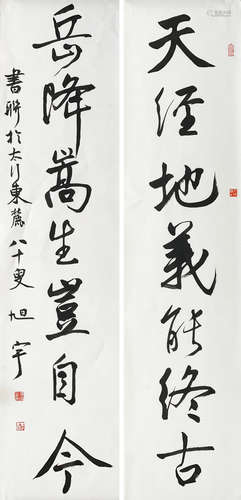 天經地義能終古
岳降嵩生豈自今
書聯於太行東麓八十叟旭宇